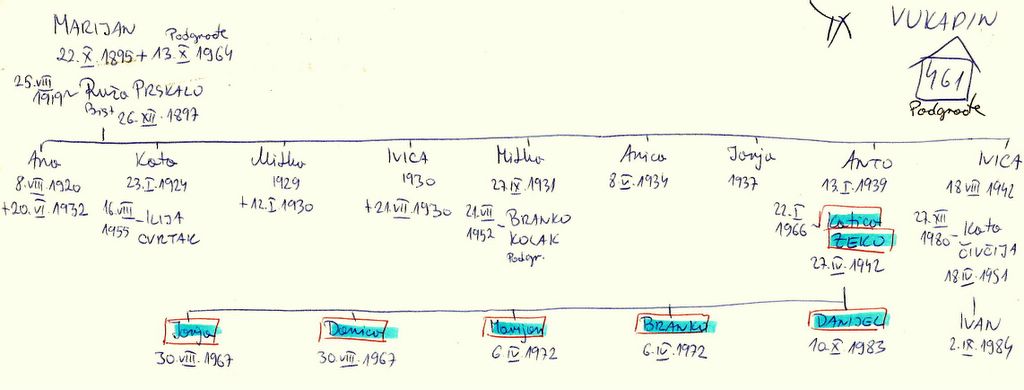 IX
VUKADIN
461
Podgrađe
MARIJAN Podgrađe
22.X.1895 + 13.X.1964
25.VIII 1919 ~ Ruža PRSKALO
Bist 26.XII.1897
Ana
8.VIII.1920
+20.VI.1932
Kata
23.I.1924
16.VIII 1955 - ILIJA
CVRTAK
Milka
1929
+12.I.1930
IVICA
1930
+21.VII.1930
Milka
27.IX.1931
21.VII 1952 - BRANKO
KOLAK
Podgr.
Anica
8.V.1934
Janja
1937
ANTO
13.I.1939
22.I 1966 ~ Katica
ZEKO
27.IV.1942
IVICA
18.VIII.1942
27.XII 1980 - Kata
ČIVČIJA
18.IV.1951
Janja
30.VIII.1967
Danica
30.VIII.1967
Marijan
6.IV.1972
BRANKO
6.IV.1972
DANIJEL
10.X.1983
IVAN
2.IX.1984